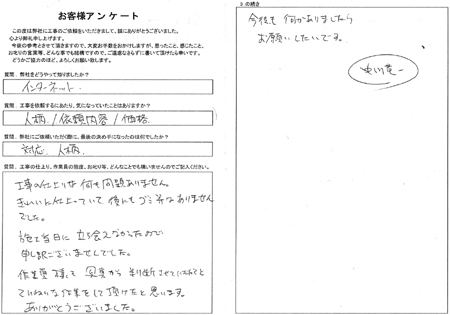 お客様アンケート
この度は弊社に工事のご依頼をいただきまして、誠にありがとうございました。
心より御礼申し上げます。
今後の参考とさせて頂きますので、大変お手数をおかけしますが、思ったこと、感じたこと、
お叱りの言葉等、どんな事でも結構ですので、ご遠慮なさらずに書いて頂けたら幸いです。
どうかご協力のほど、よろしくお願い致します。
質問．弊社をどうやって知りましたか？
インターネット
質問．工事を依頼するにあたり、気になっていたことはありますか？
人柄／依頼内容／価格
質問．弊社にご依頼いただく際に、最後の決め手になったのは何でしたか？
対応、人柄
質問．工事の仕上り、作業員の態度、お叱り等、どんなことでも構いませんのでご記入ください。
工事の仕上りは何も問題ありません。
きれいに仕上っていて 後にも ゴミ等なありません
でした。
施工当日に立ち会えなかったので
申し訳ございませんでした。
作業員 様にて 写真から 判断させていただくと
ていねいな作業をして頂けたと思います。
ありがとうございました。
の続き
今後も 何かありましたら
お願いしたいです。